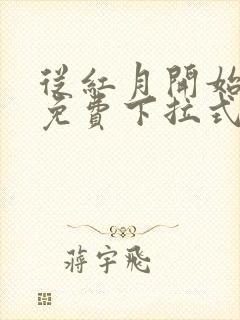 從紅月開始
免費下拉式
蔣宇飛